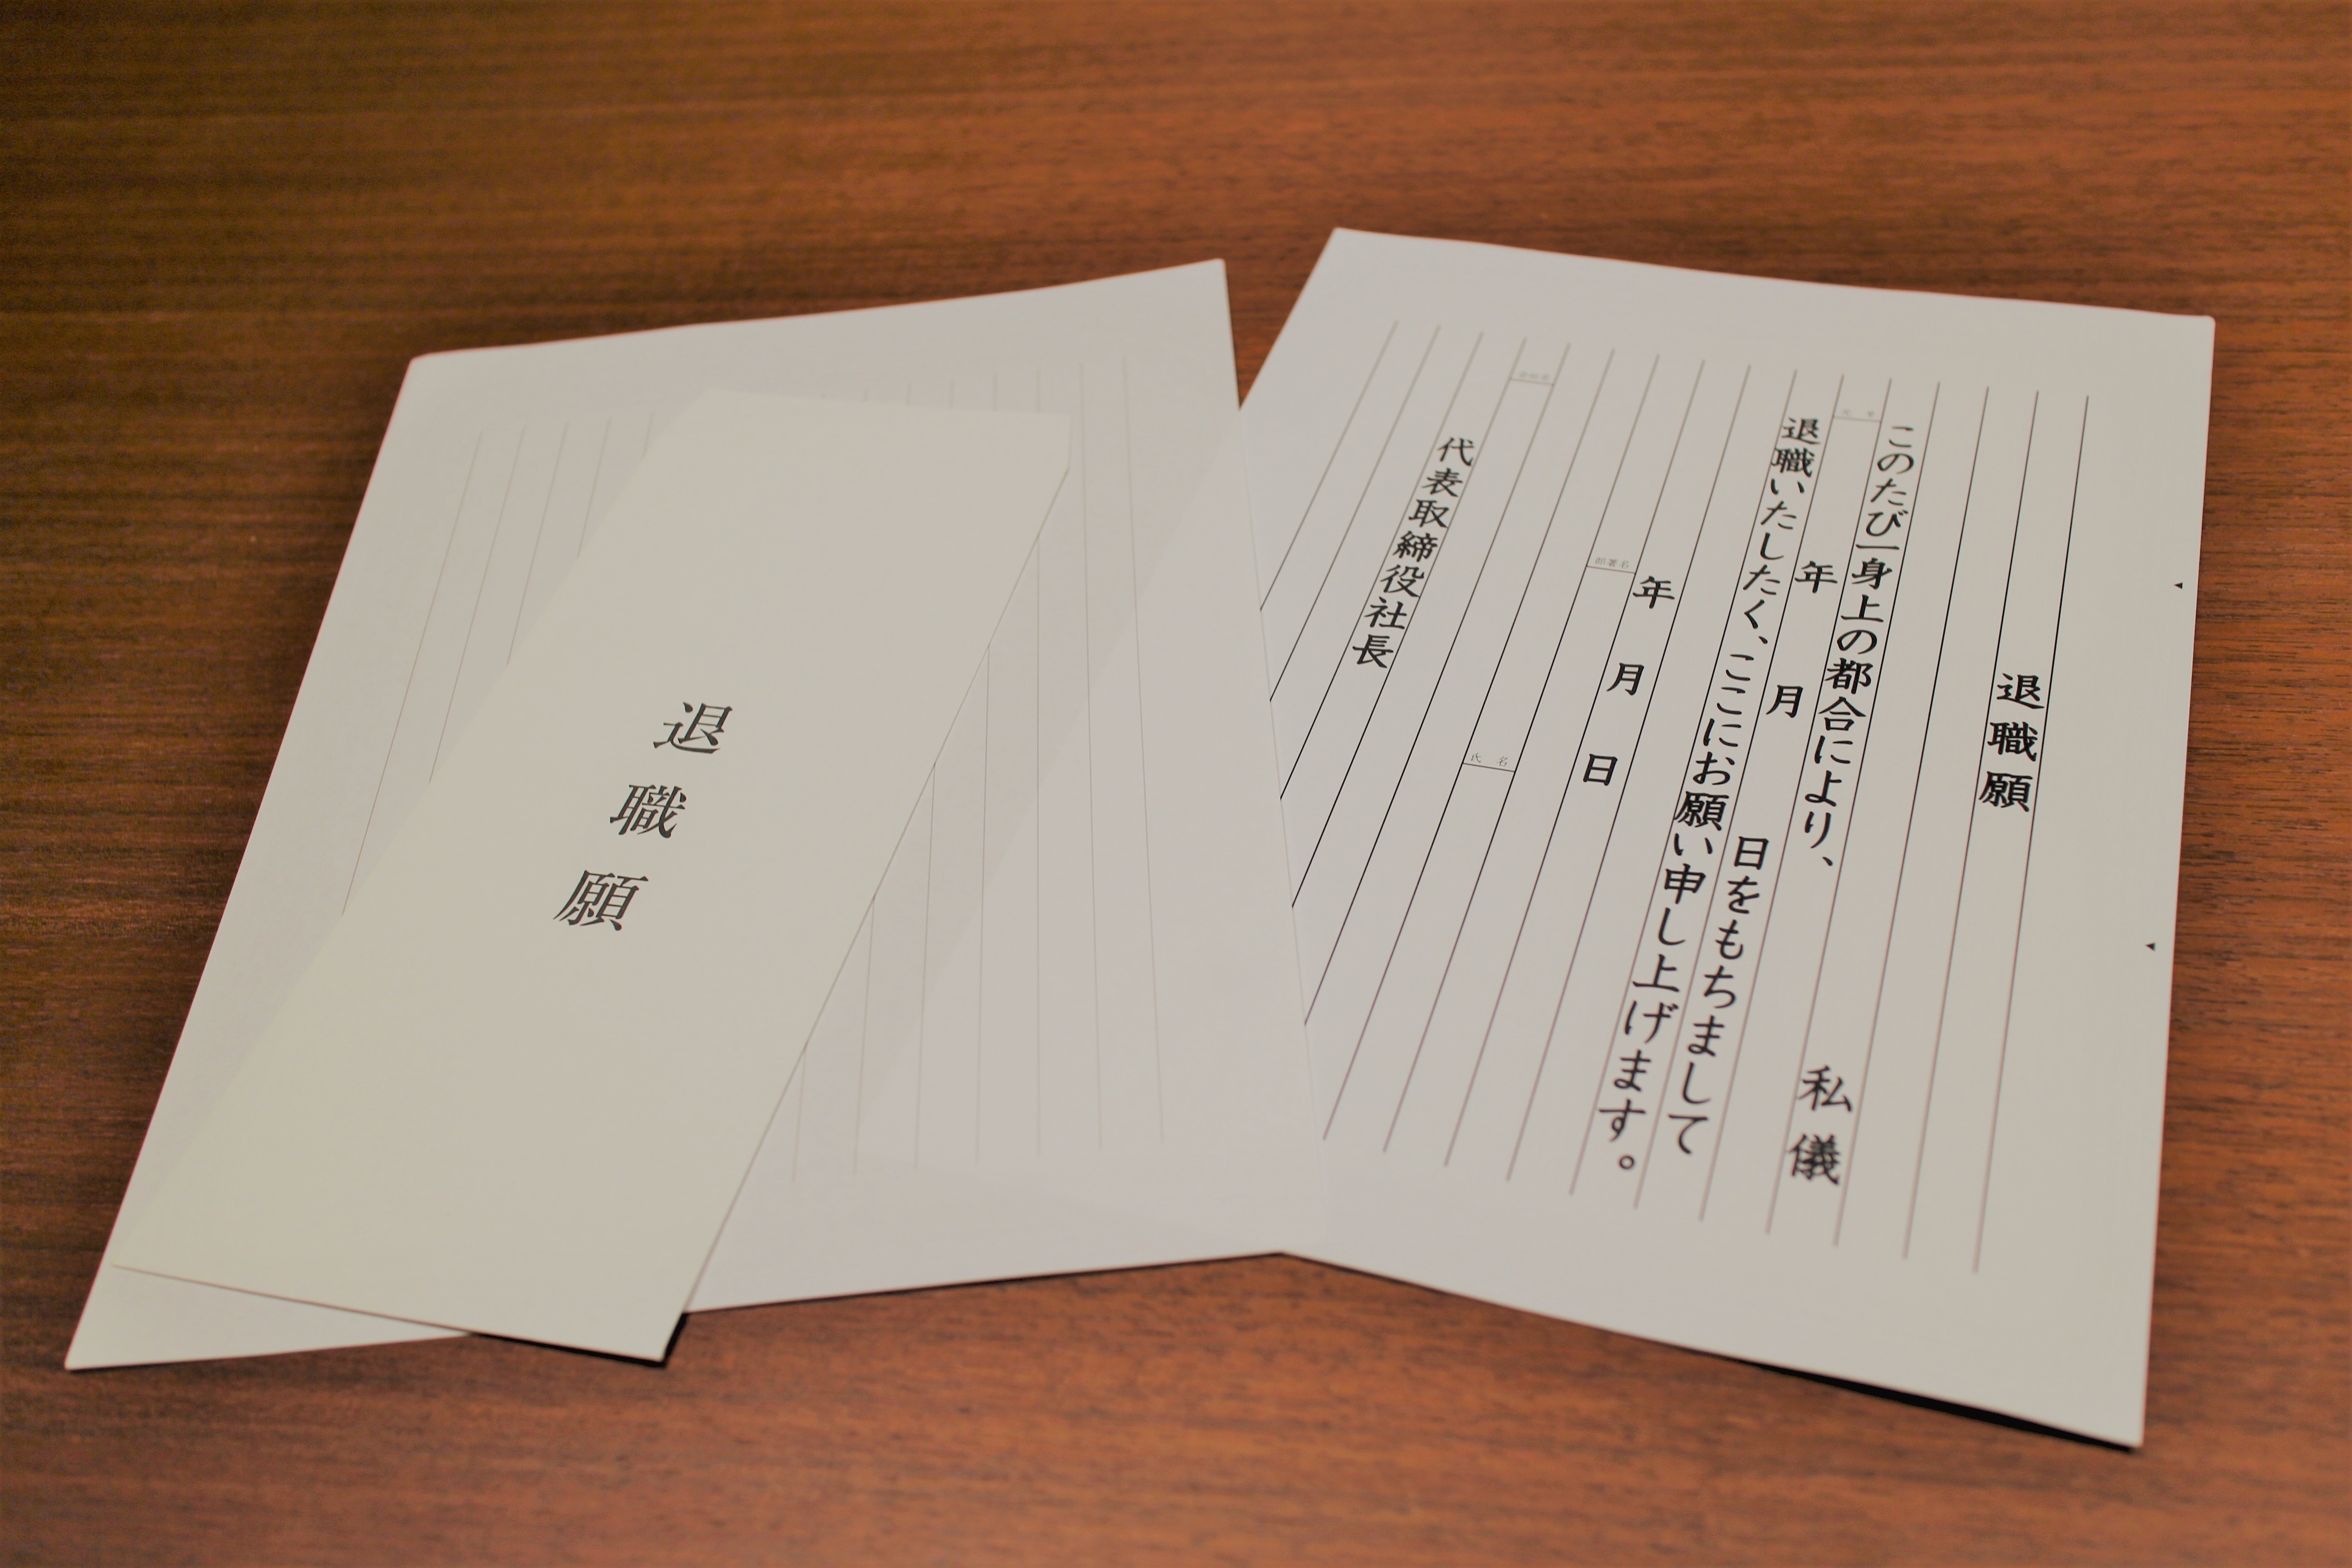 退職願
私儀
このたび一身上の都合により、
年 月 日をもちまして
退職いたしたく、ここにお願い申し上げます。
年 月 日
部署名
氏名
代表取締役社長
退職願